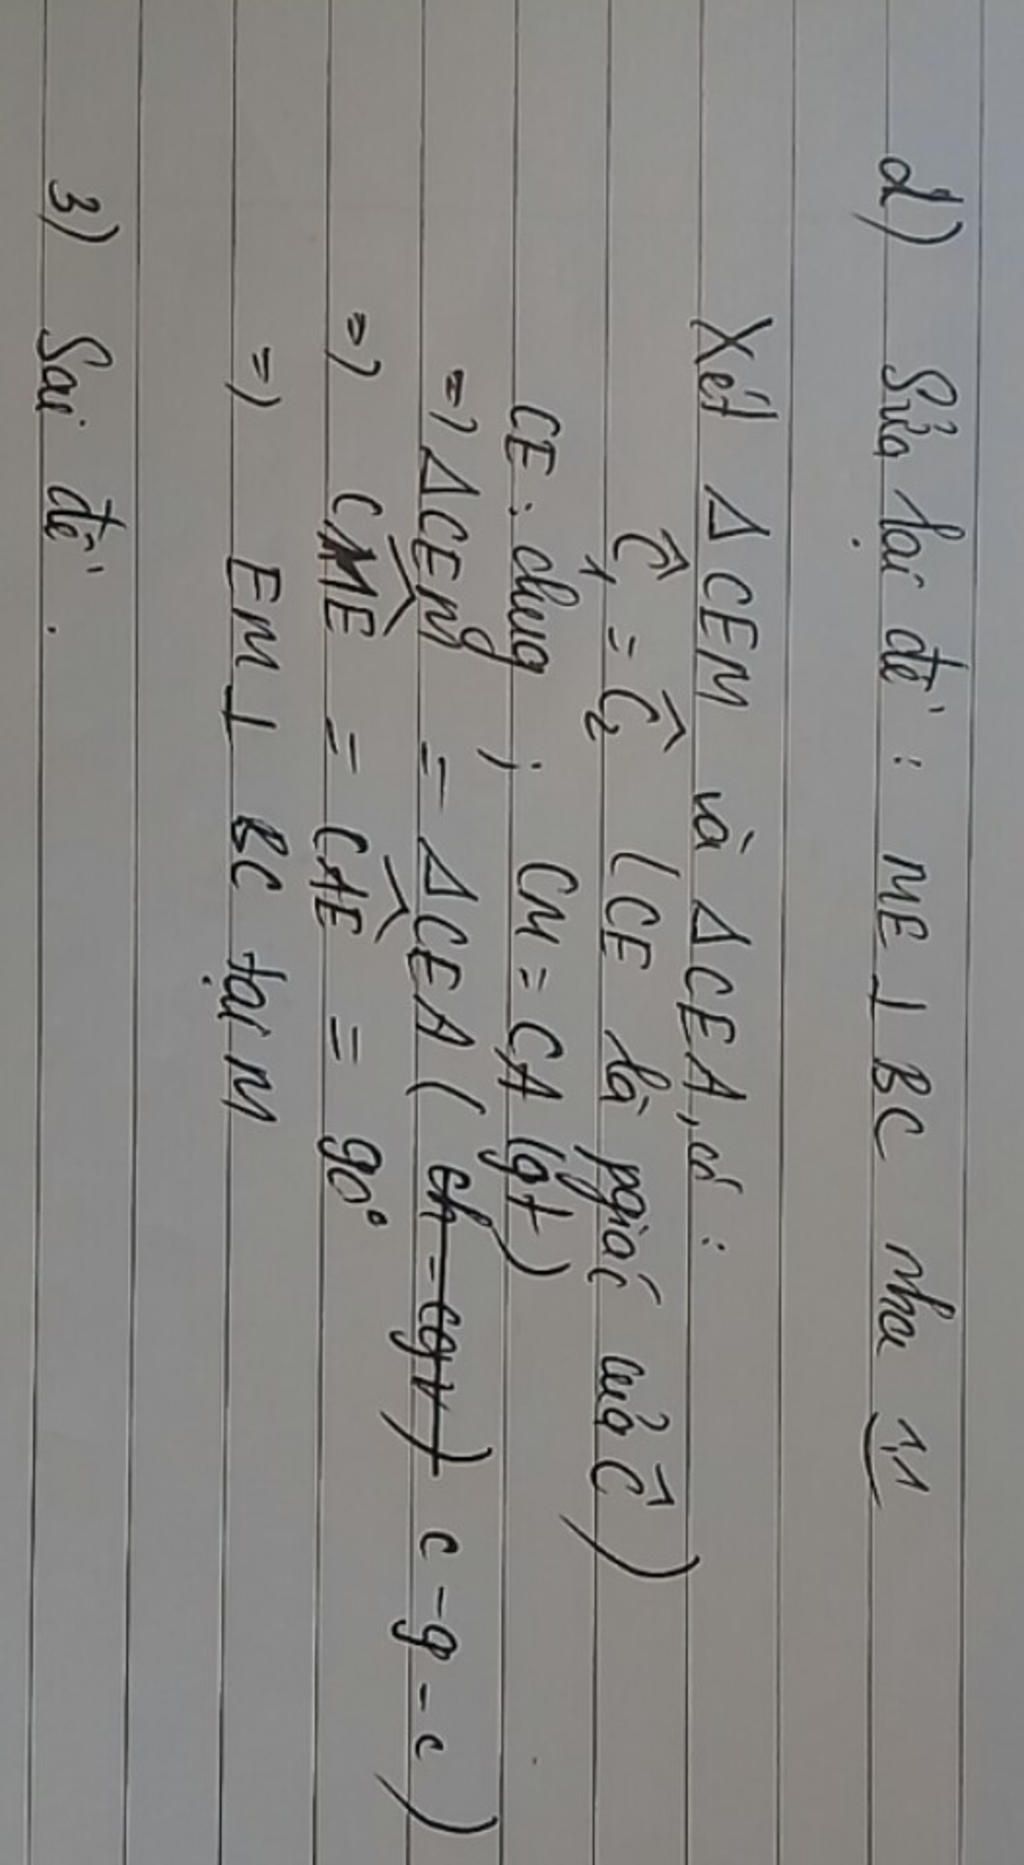 d) Sửa lại đề : ME ⊥ BC nha
Xét ΔCEM và ΔCEA, có :
Ĉ₁ = Ĉ₂ (CE là pgiác của Ĉ)
CE : chug ; CM = CA (gt)
=) ΔCEM = ΔCEA ( ch - cgv ) c - g - c )
=) CME = CAE = 90°
=) EM ⊥ BC tại M
3) Sai đề .